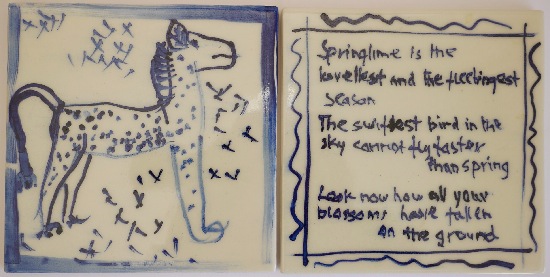 Springtime is the
lovellest and the fleetingest
season
The swiftest bird in the
sky cannot fly faster
than spring
Look now how all your
blossoms have fallen
on the ground